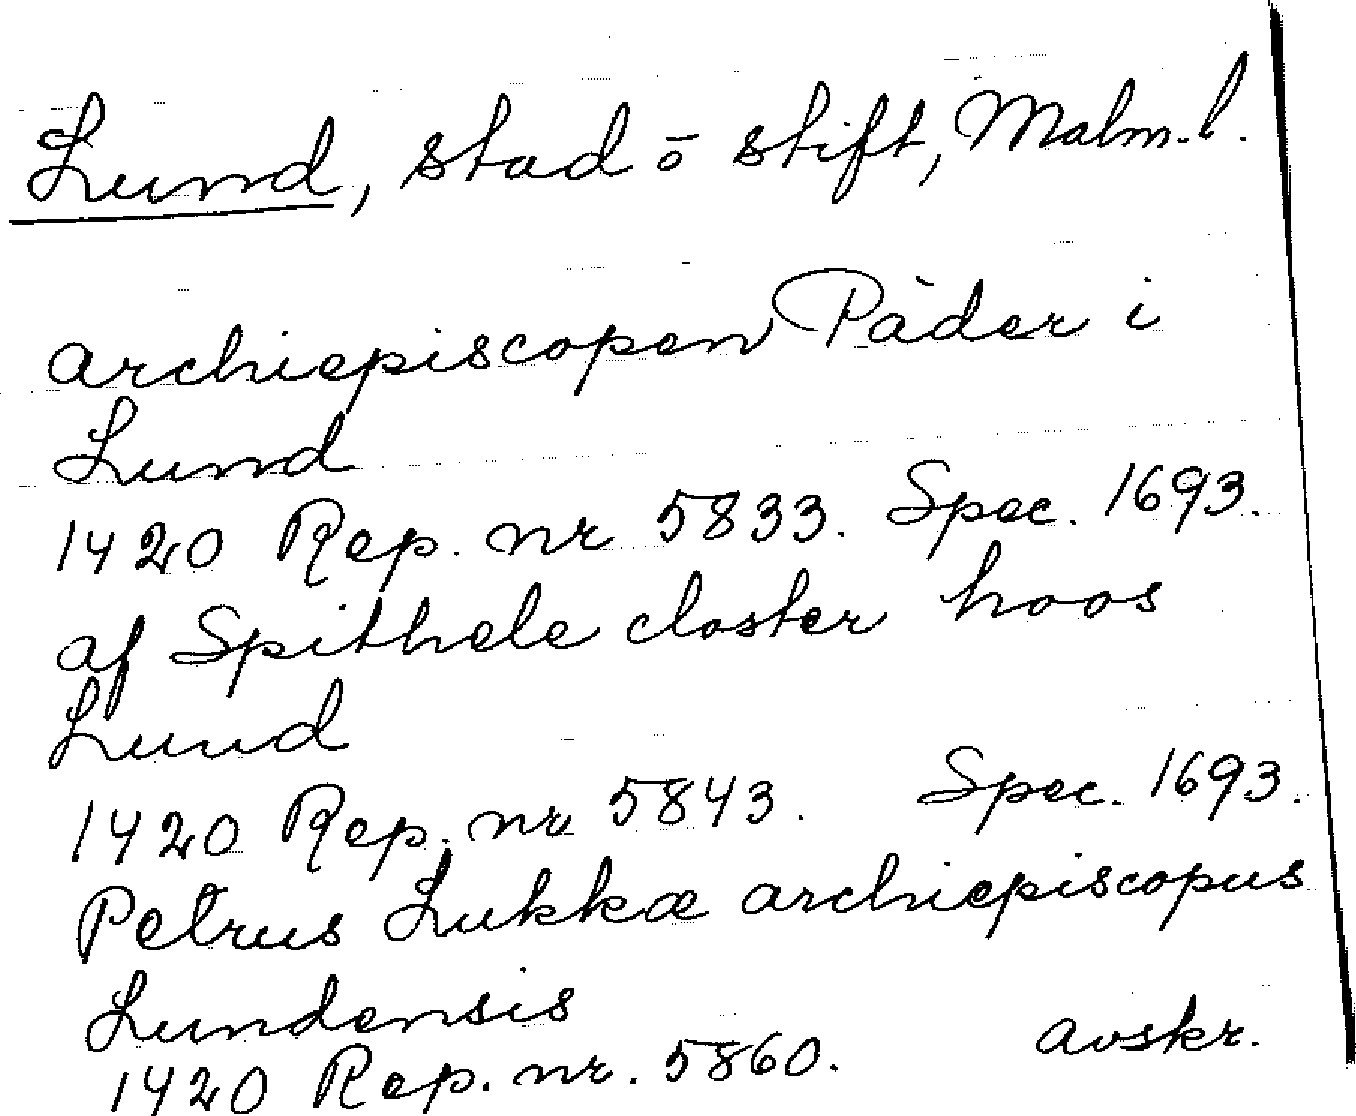 Lund, stad o stift, Malm.l.
archiepiscopen Päder i
Lund
1420 Rep. nr 5833. Spec. 1693.
af Spithele closter hoos
Lund
1420 Rep. nr 5843. Spec. 1693.
Petrus Lukkæ archiepiscopus
Lundensis
1420 Rep. nr. 5860. avskr.